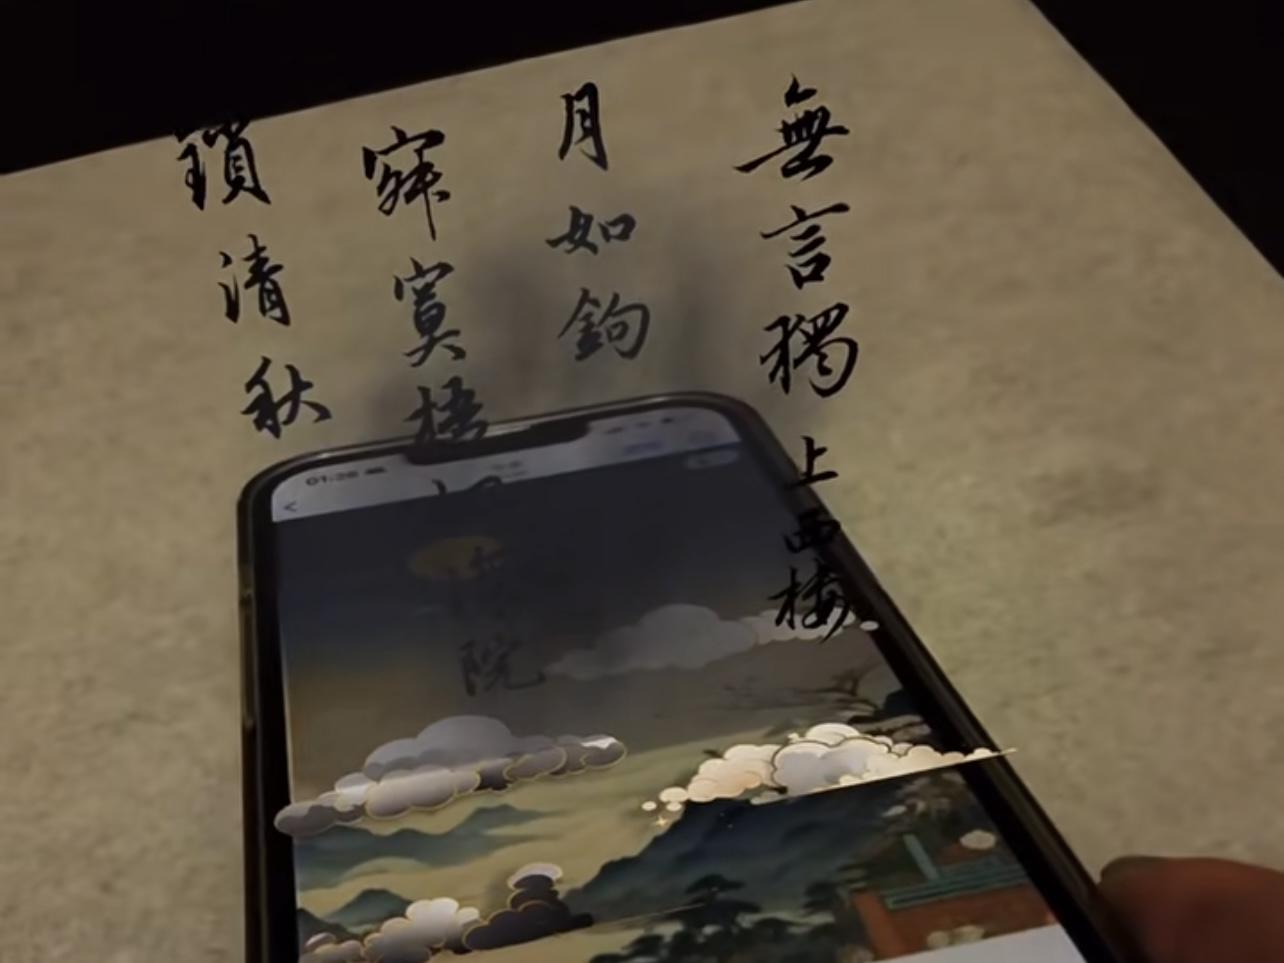 無言獨上西樓
月如鉤
寂寞梧
院
鎖清秋
01:26